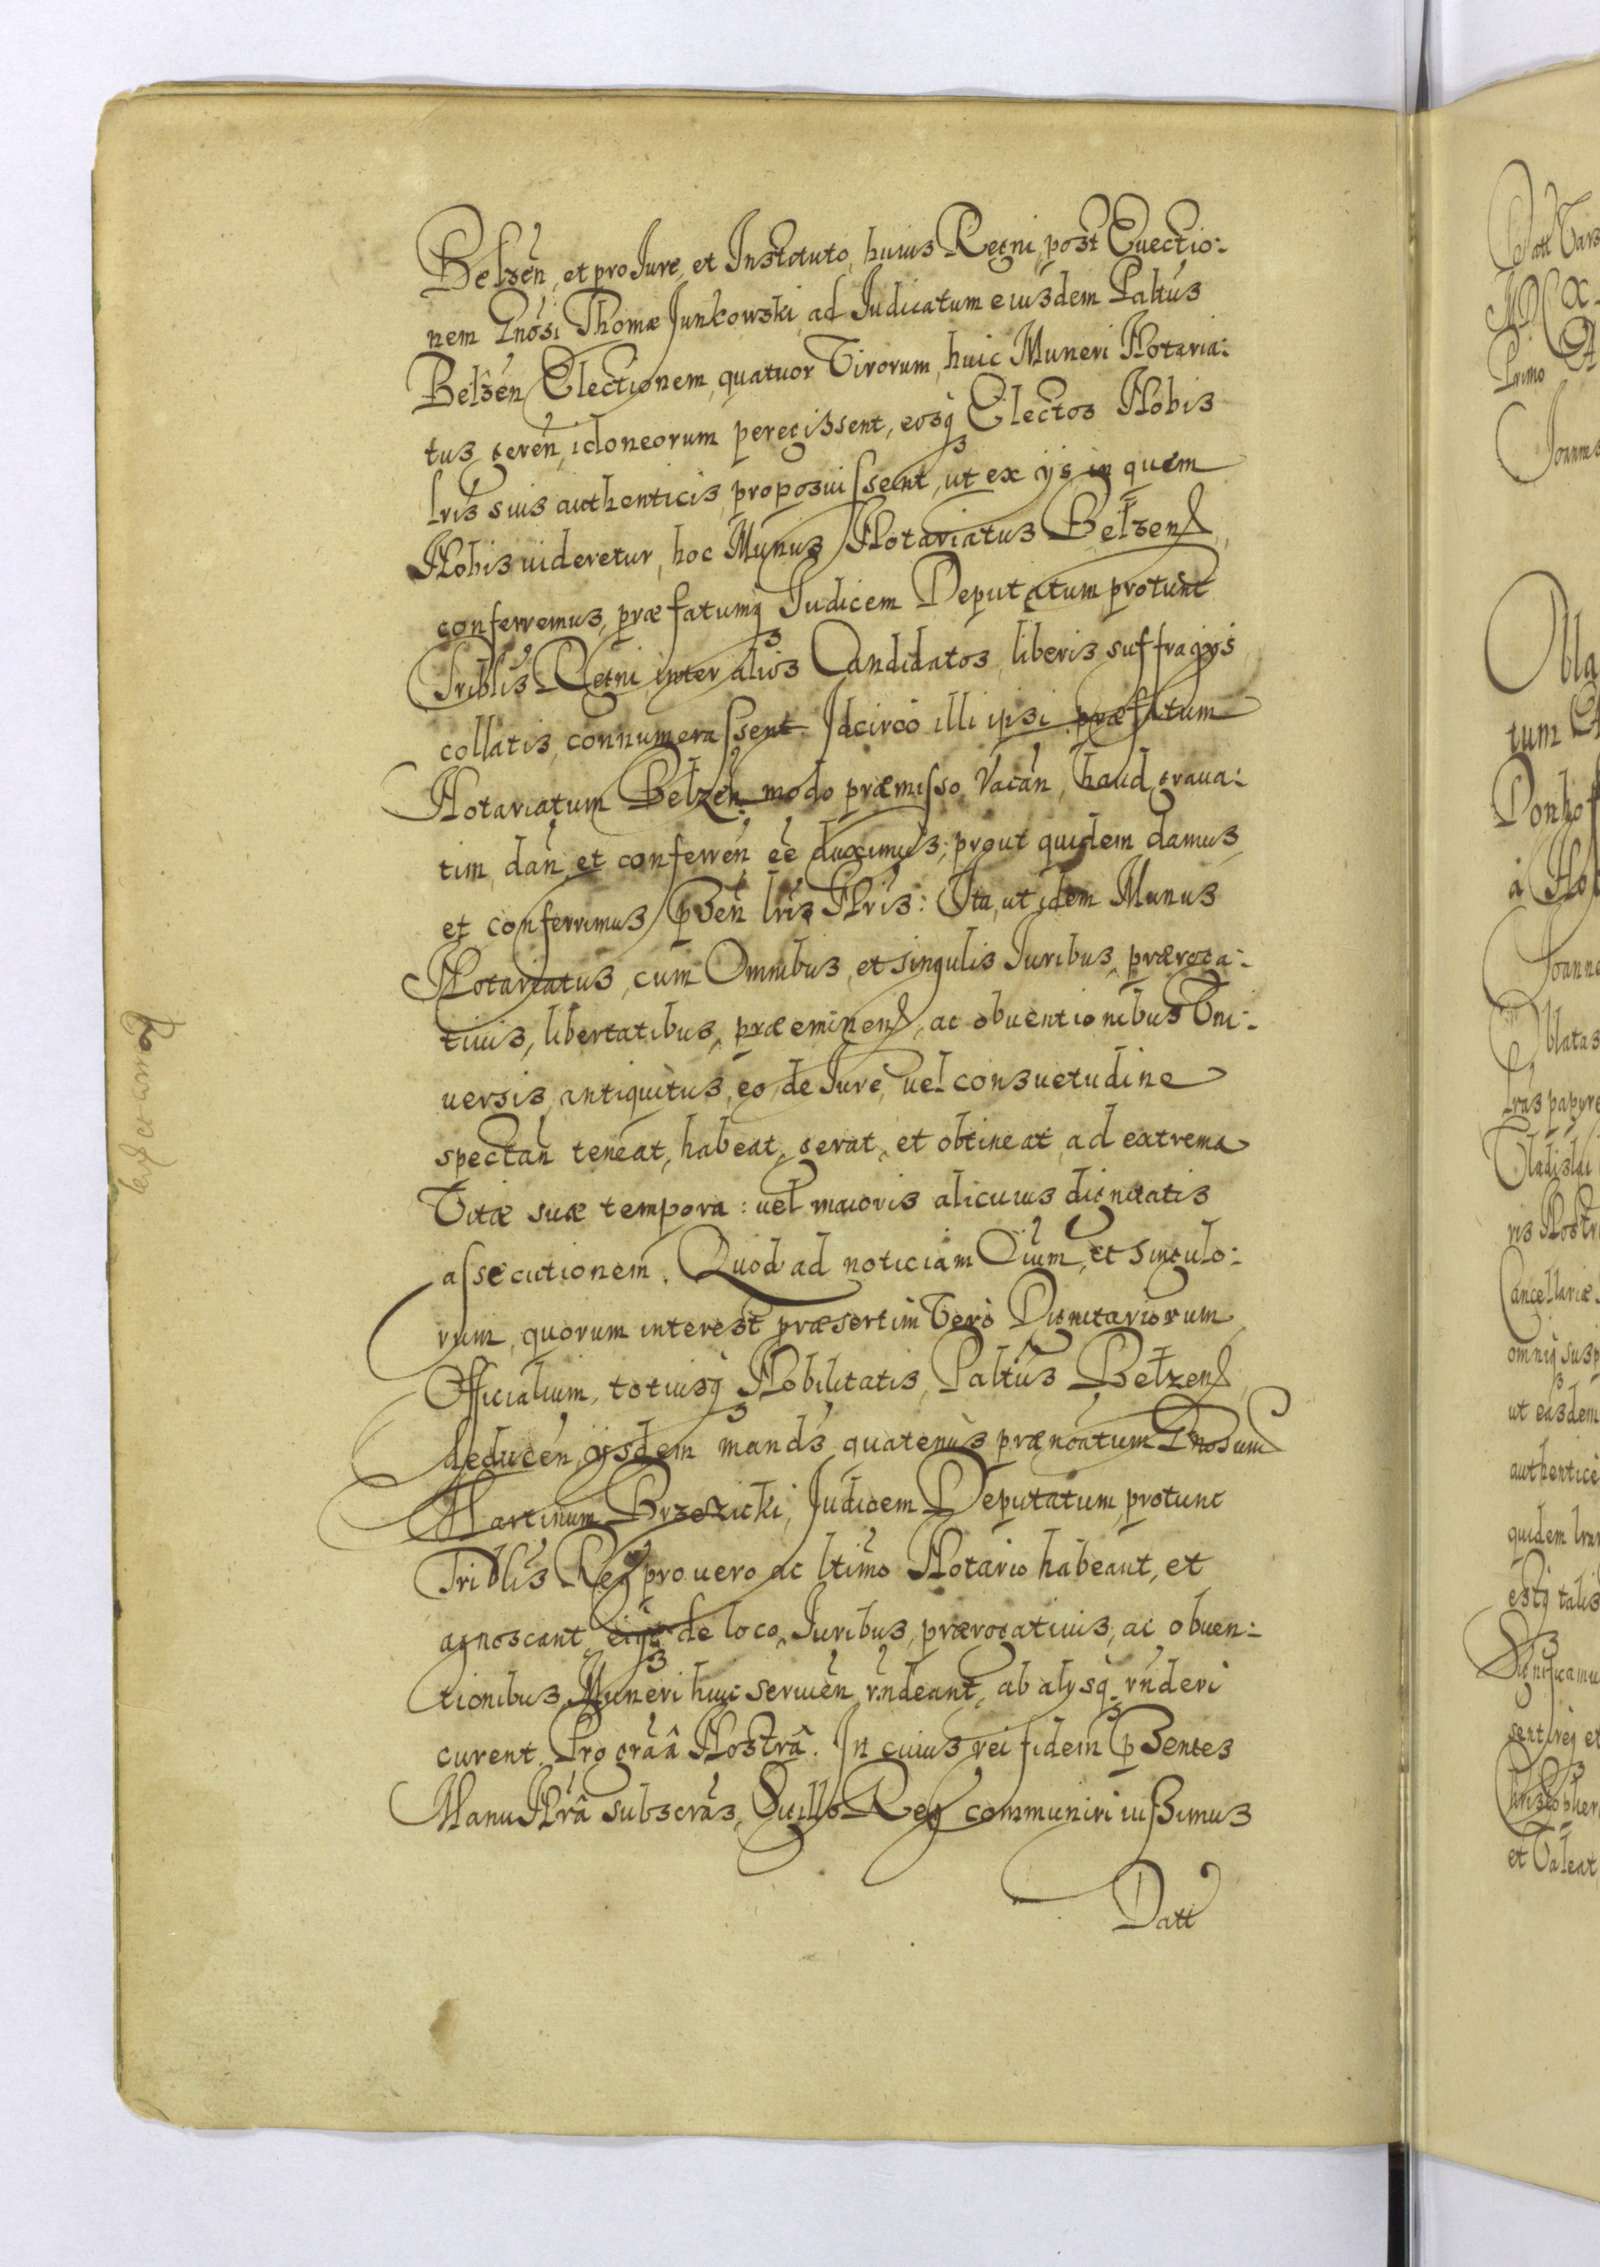 Belzen, et pro Iure, et Instituto, huius Regni, post Euectio:
nem Gnosi Thomæ Junkowski, ad Iudicatum eiusdem Paltus
Belzen Electionem, quatuor Virorum, huic Muneri Notaria:
tus geren, idoneorum peregissent, eosq Electos Nobis
lris suis authenticis, proposuissent, ut ex ijs in quem
Nobis uideretur, hoc Munus Notariatus Belzen
conferremus, præfatumq Iudicem Deputatum protunt
Triblis Regni, inter alios Candidatos, liberis suffragijs
collatis, connumerassent. Idcirco illi ipsi præfatum
Notariatum Belzen modo præmisso Vacan, haud graua:
tim, dan, et conferren ee duximus; prout quidem damus,
et conferrimus pden lris Nris: Ita, ut idem Munus
Notariatus, cum Omnibus, et singulis Iuribus, præroga:
tiuis, libertatibus, præeminen, ac obuentionibus Vni:
uersis, antiquitus, eo, de Iure, uel consuetudine
spectan teneat, habeat, gerat, et obtineat, ad extrema
Vitæ suæ tempora: uel maioris alicuius dignitatis
assecutionem. Quod ad noticiam Oium, et singulo:
rum, quorum interest præsertim Vero Dignitariorum,
Officialium, totiusq Nobilitatis, Paltus Belzen,
deducen, ijsdem mands, quatenus prænoatum Gnosum
Martinum Brzezicki, Iudicem Deputatum, protunc
Triblis Reg pro uero ac ltimo Notario habeant, et
agnoscant, eiq de loco, Iuribus, prærogatiuis, ac obuen:
tionibus, Muneri huic seruien, rndeant, ab alijsq rnderi
curent. Pro graâ Nostrâ. In cuius rei fidem psentes
Manu Nrâ subscras, Sigillo Reg communiri iussimus
Datt